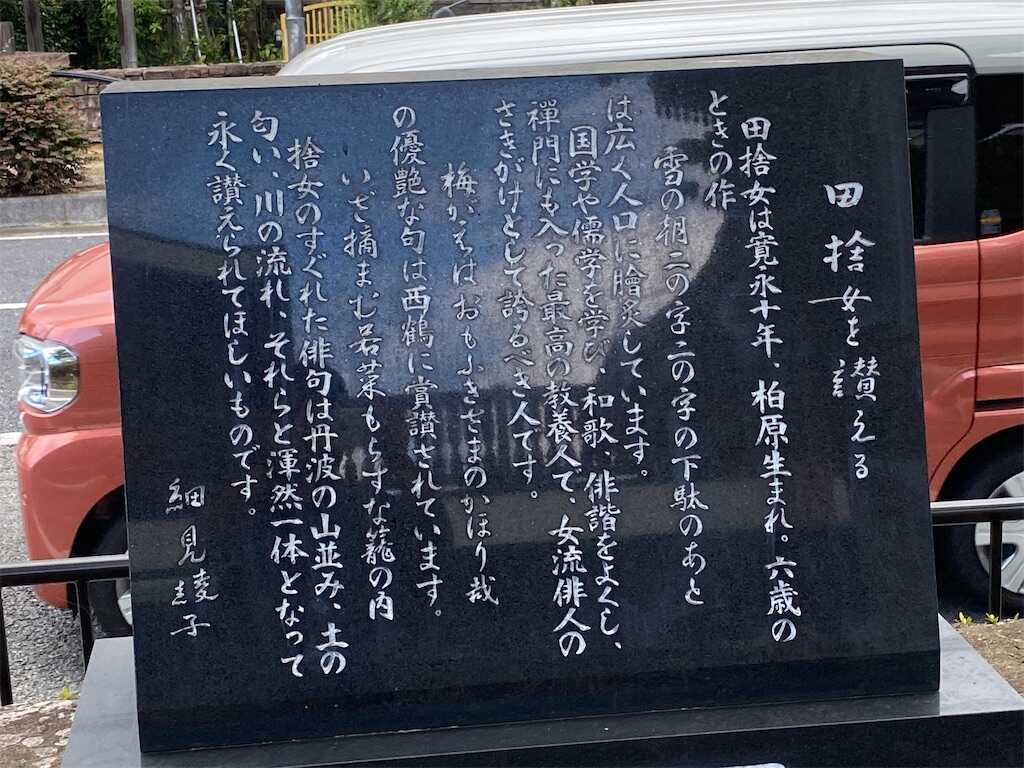 田捨女を讃える
田捨女は寛永十年、柏原生まれ。六歳の
ときの作
雪の朝二の字二の字の下駄のあと
は広く人口に膾炙しています。
国学や儒学を学び、和歌、俳諧をよくし、
禅門にも入った最高の教養人で、女流俳人の
さきがけとして誇るべき人です。
梅がえはおもふきさまのかほり哉
の優艶な句は西鶴に賞讃されています。
いざ摘まむ若菜もらすな籠の内
捨女のすぐれた俳句は丹波の山並み、土の
匂い、川の流れ、それらと渾然一体となって
永く讃えられてほしいものです。
細見綾子